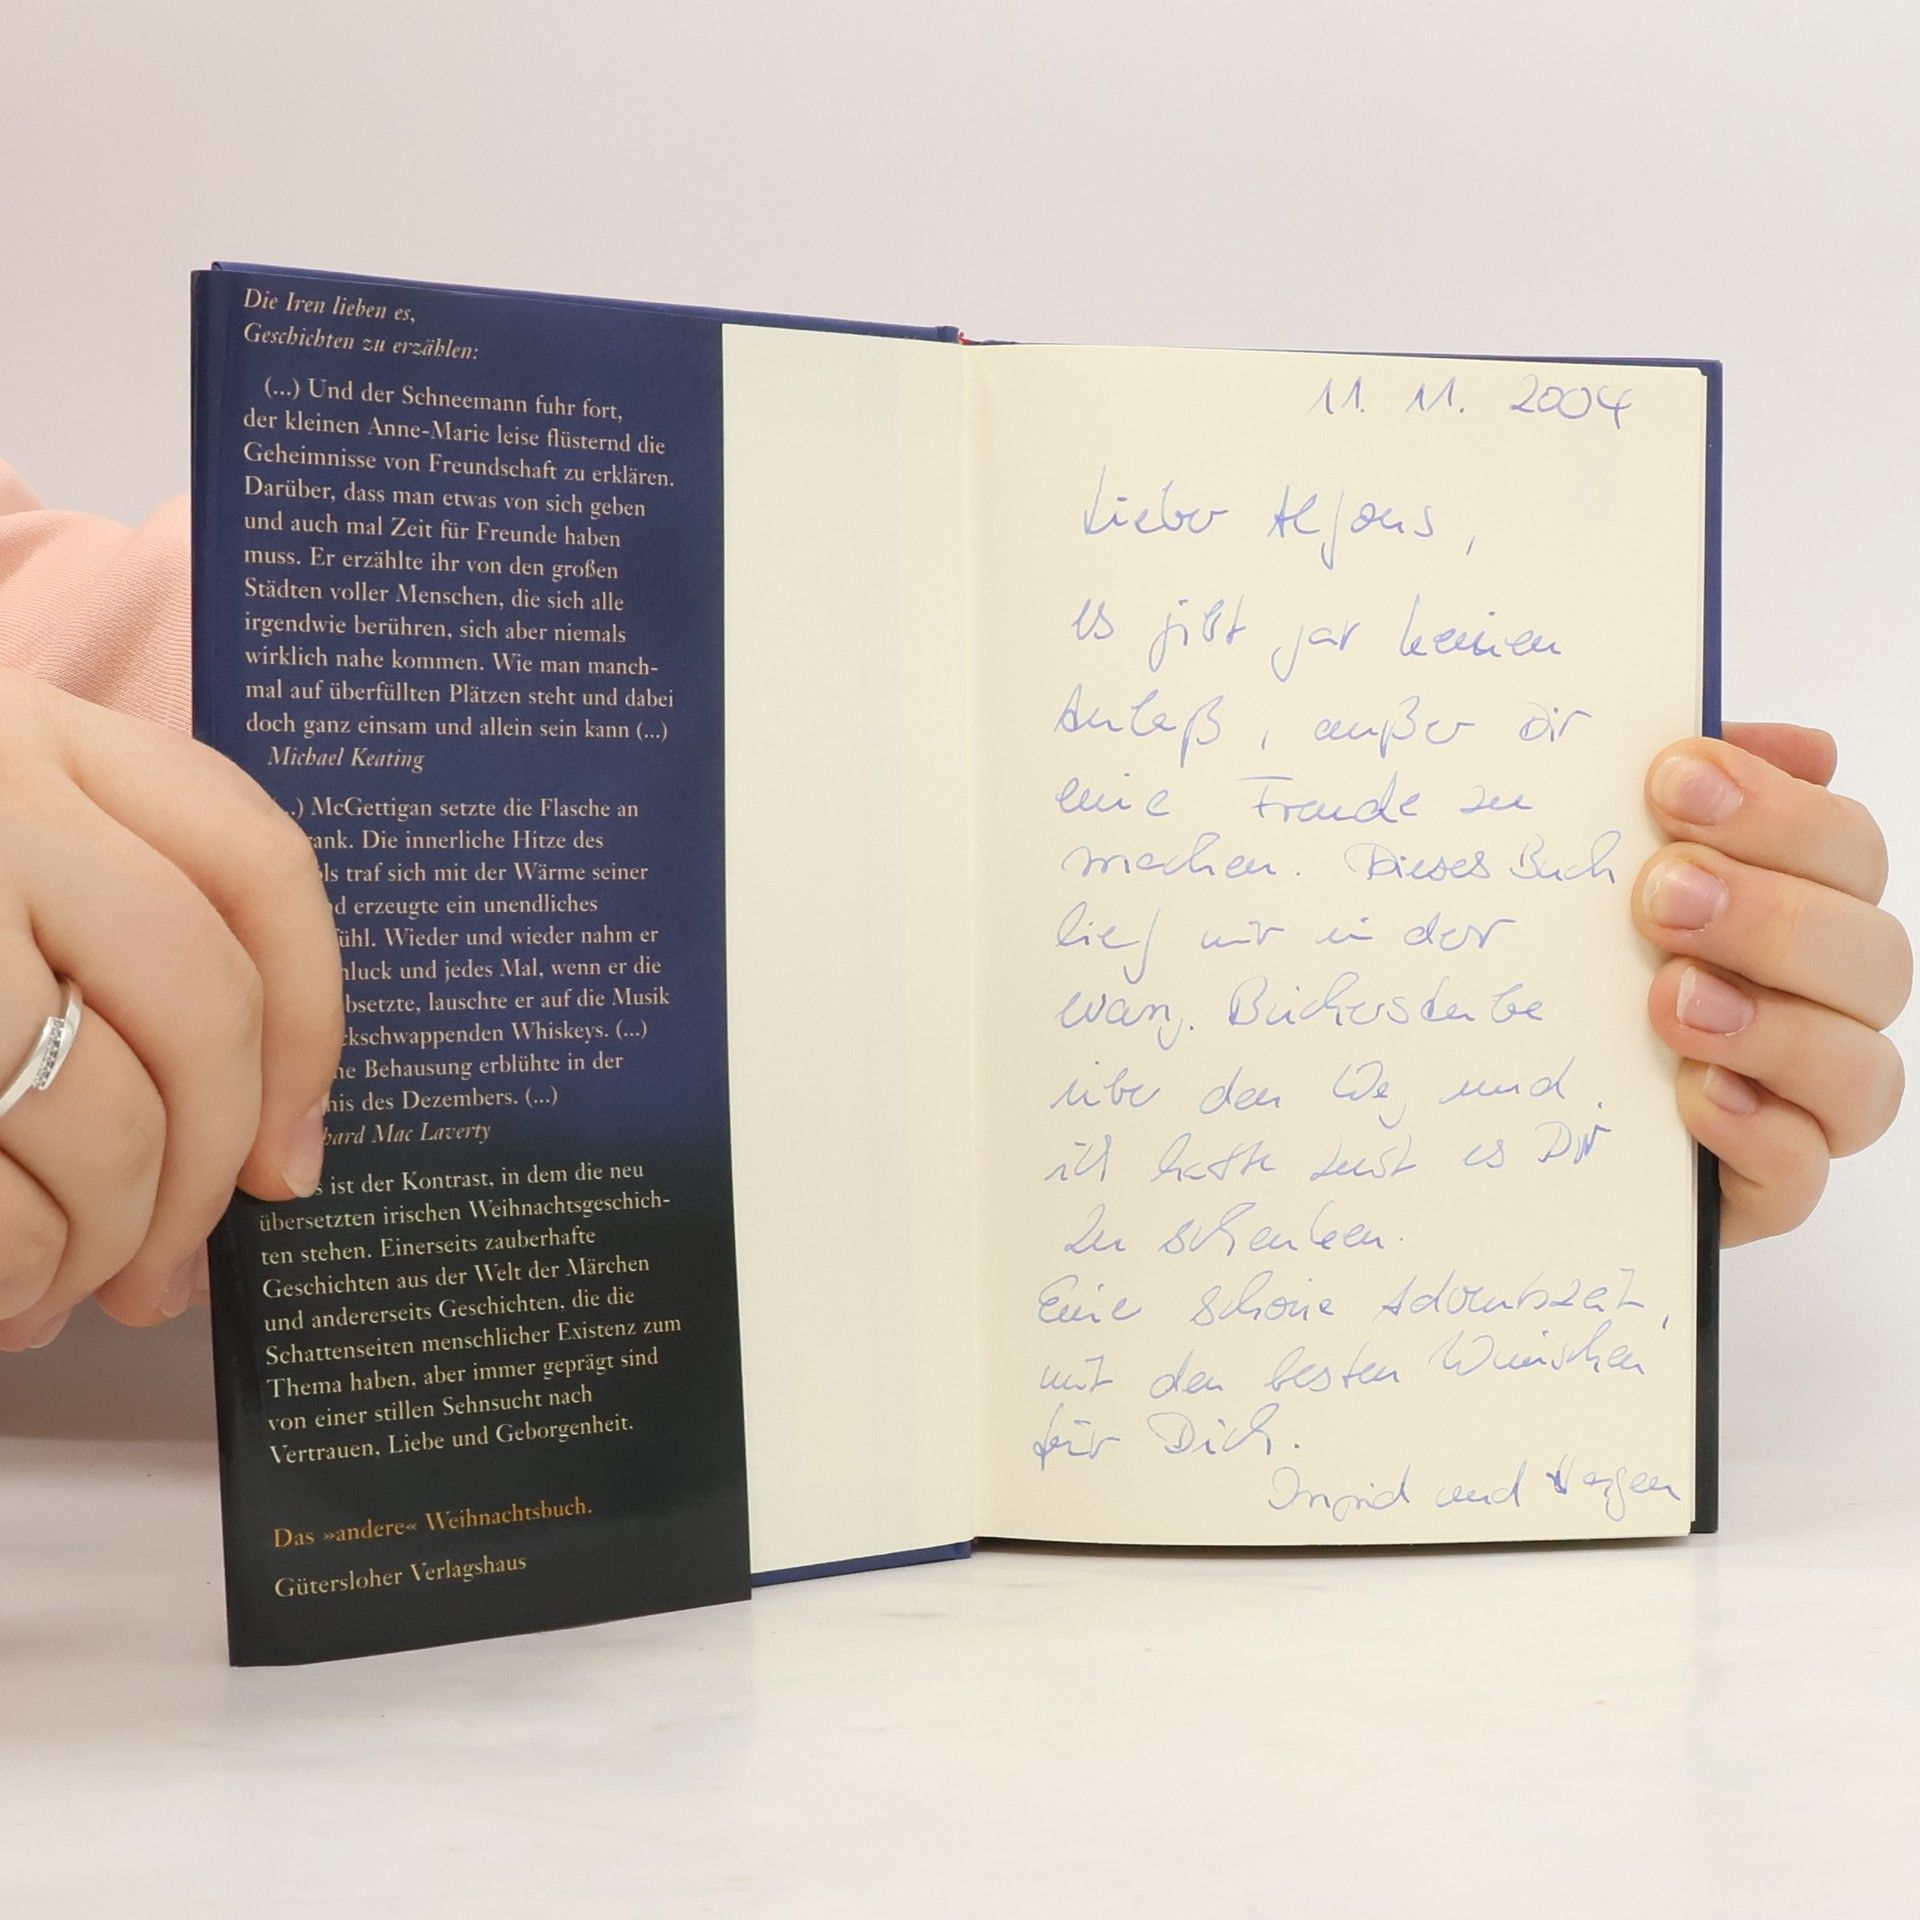 Die Iren lieben es,
Geschichten zu erzählen:
(...) Und der Schneemann fuhr fort,
der kleinen Anne-Marie leise flüsternd die
Geheimnisse von Freundschaft zu erklären.
Darüber, dass man etwas von sich geben
und auch mal Zeit für Freunde haben
muss. Er erzählte ihr von den großen
Städten voller Menschen, die sich alle
irgendwie berühren, sich aber niemals
wirklich nahe kommen. Wie man manch-
mal auf überfüllten Plätzen steht und dabei
doch ganz einsam und allein sein kann (...)
Michael Keating
..) McGettigan setzte die Flasche an
rank. Die innerliche Hitze des
ls traf sich mit der Wärme seiner
d erzeugte ein unendliches
ühl. Wieder und wieder nahm er
hluck und jedes Mal, wenn er die
bsetzte, lauschte er auf die Musik
ckschwappenden Whiskeys. (...)
ne Behausung erblühte in der
nis des Dezembers. (...)
hard Mac Laverty
s ist der Kontrast, in dem die neu
übersetzten irischen Weihnachtsgeschich-
ten stehen. Einerseits zauberhafte
Geschichten aus der Welt der Märchen
und andererseits Geschichten, die die
Schattenseiten menschlicher Existenz zum
Thema haben, aber immer geprägt sind
von einer stillen Sehnsucht nach
Vertrauen, Liebe und Geborgenheit.
Das »andere« Weihnachtsbuch.
Gütersloher Verlagshaus
11. 11. 2004
Lieber Alfons,
es gibt gar keinen
Anlaß, außer Dir
eine Freude zu
machen. Dieses Buch
lief mir in der
evang. Bücherstube
über den Weg und
ich hatte Lust es Dir
zu schenken.
Eine schöne Adventszeit,
mit den besten Wünschen
für Dich.
Ingrid und